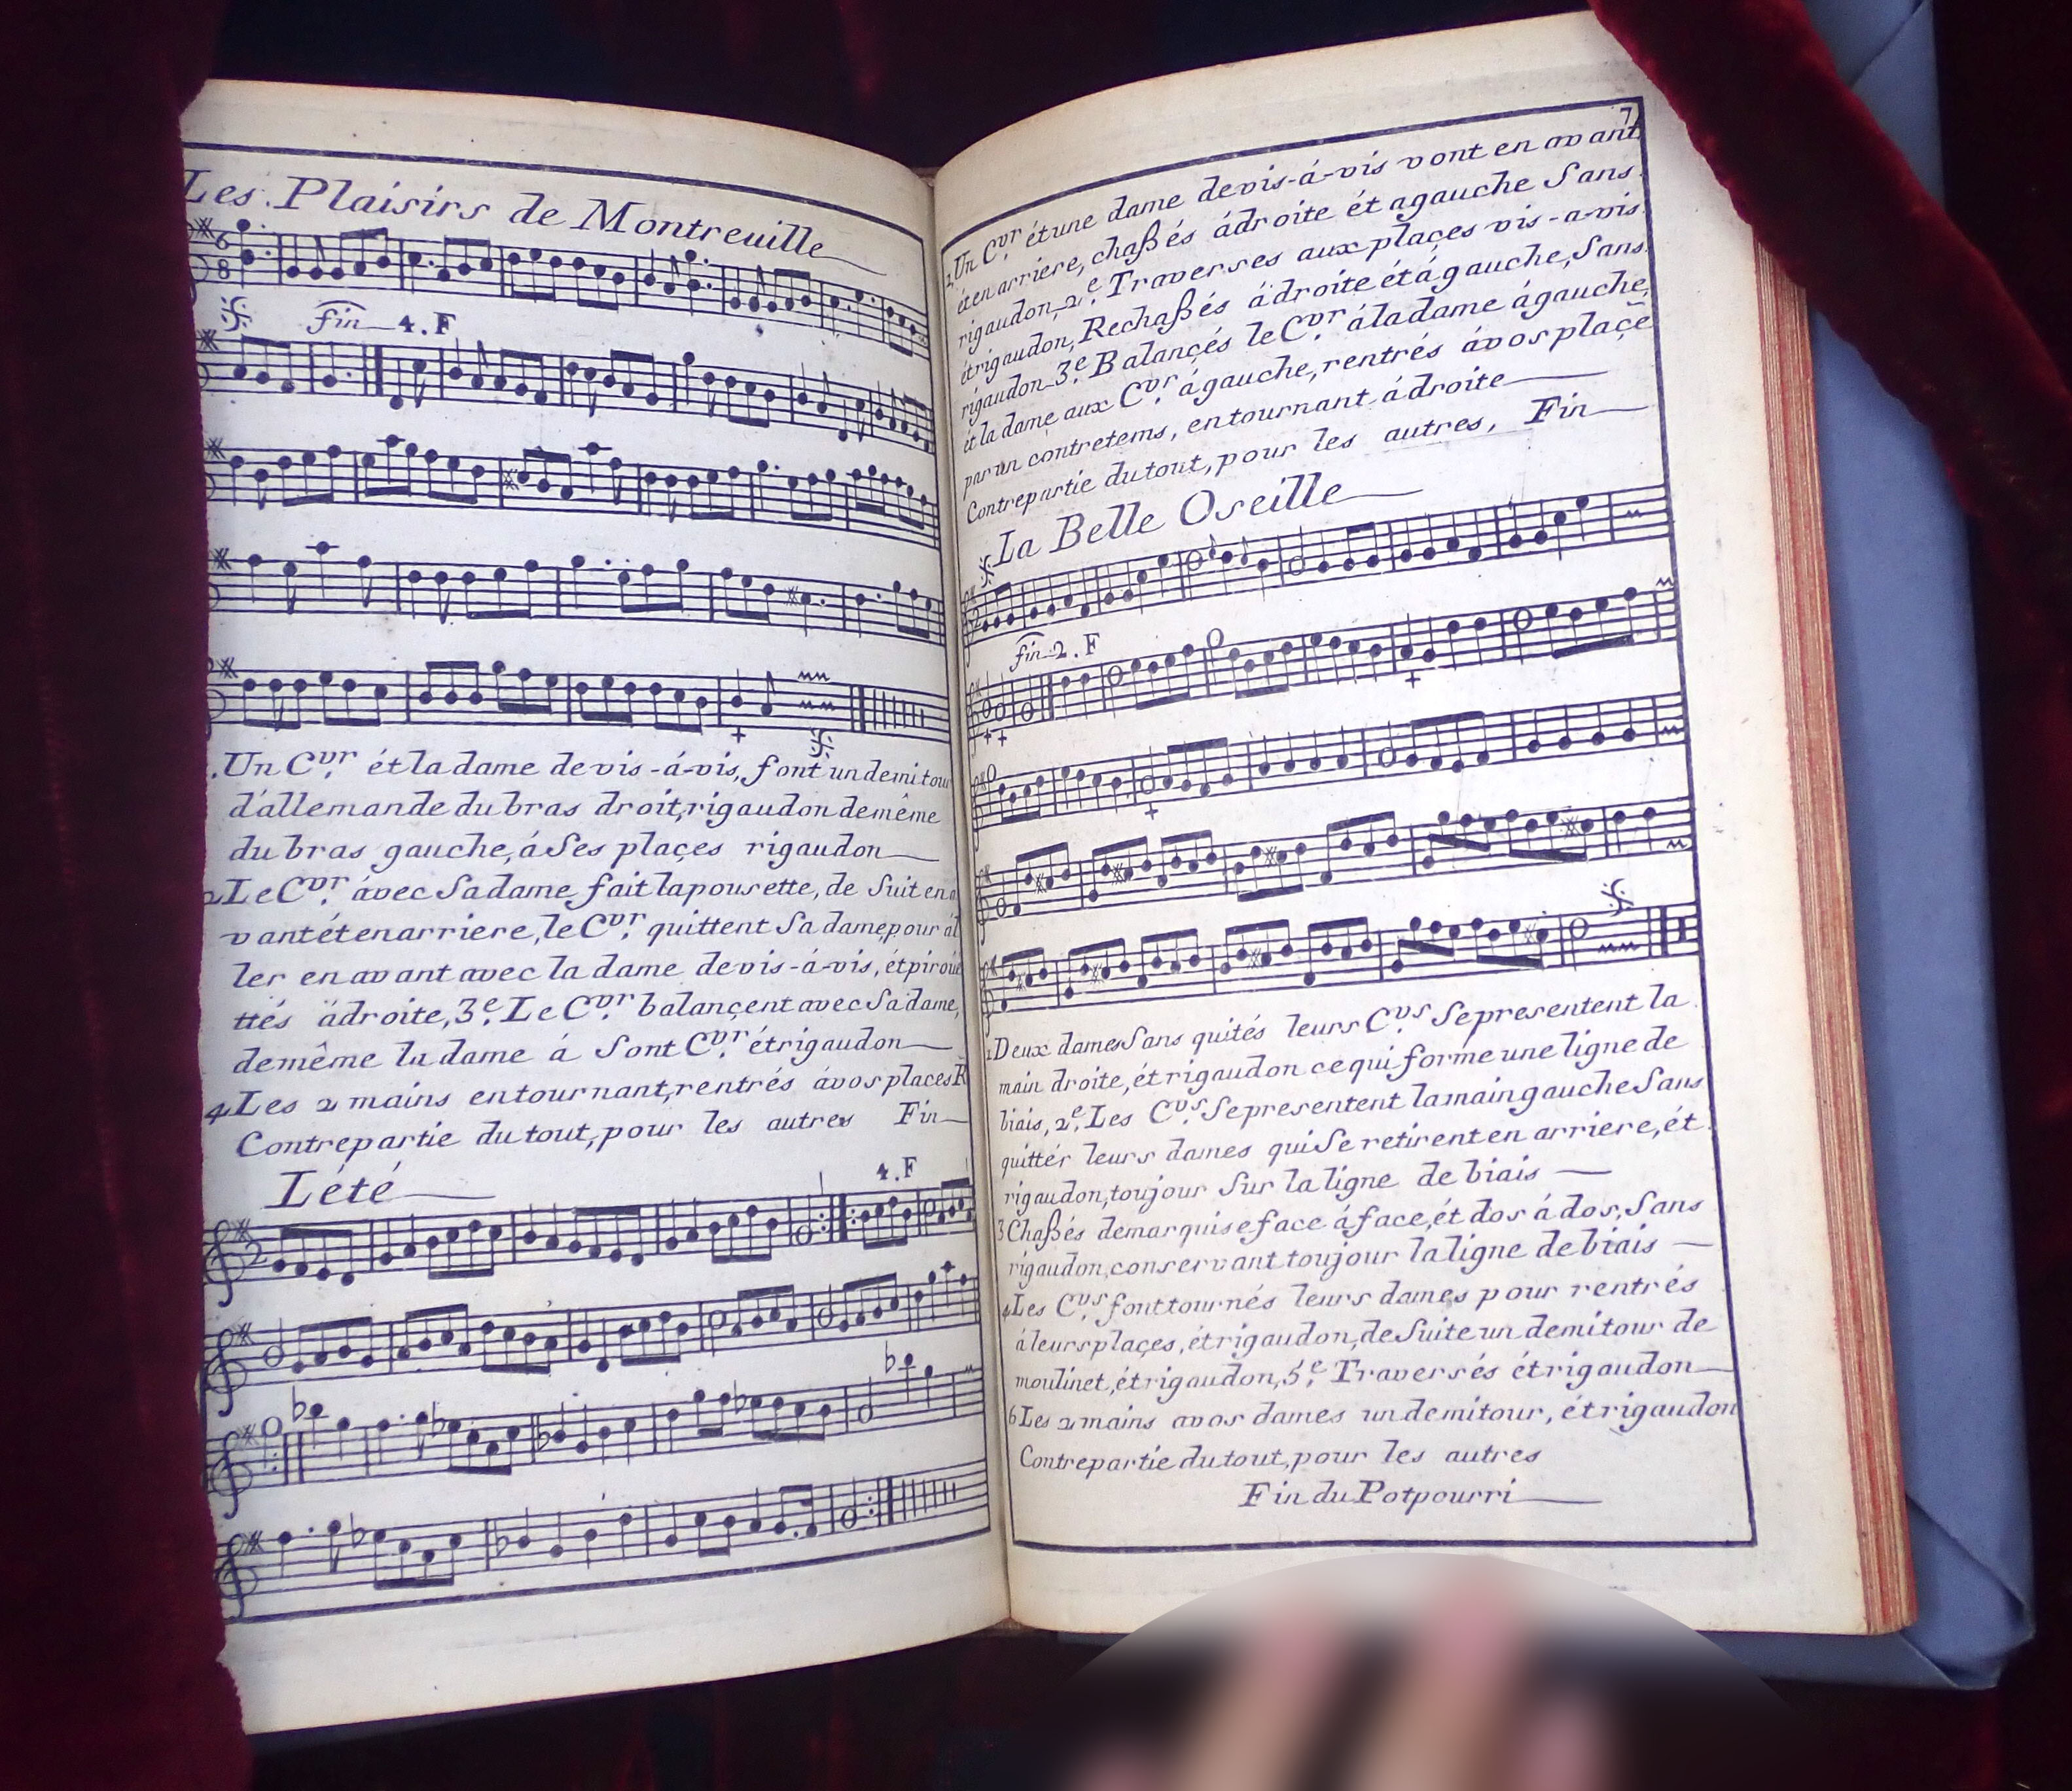 Les Plaisirs de Montreuille
6
8
fin 4. F
1. Un Cvr. ét la dame de vis-á-vis, font un demi tour
d'allemande du bras droit, rigaudon de même
du bras gauche, á Ses plaçes rigaudon
2 Le Cvr. ávec Sa dame fait la pousette, de Suit en a
vant ét en arriere, le Cvr. quittent Sa dame, pour ál
ler en avant avec la dame de vis-á-vis, ét piroüe
ttés ädroite, 3e. Le Cvr. balançent avec Sa dame,
de même la dame á Sont Cvr. ét rigaudon
4 Les 2 mains en tournant, rentrés ávos places R
Contrepartie du tout, pour les autres Fin
Lété
4. F
2
7
1 Un Cvr. ét une dame de vis-á-vis vont en avant
ét en arriere, chaßés ádroite ét agauche Sans
rigaudon, 2e. Traverses aux plaçes vis-a-vis
ét rigaudon, Rechaßés ádroite ét ágauche, Sans
rigaudon 3e. Balançés le Cvr. á la dame ágauche,
ét la dame aux Cvr. ágauche, rentrés ávos plaçe
par un contretems, en tournant ádroite
Contrepartie du tout, pour les autres, Fin
La Belle Oseille
2
fin 2. F
1 Deux dames Sans quités leurs Cvrs. Se presentent la
main droite, ét rigaudon ce qui forme une ligne de
biais, 2e. Les Cvrs. Se presentent la main gauche Sans
quittér leurs dames qui Se retirent en arriere, ét
rigaudon, toujour Sur la ligne de biais
3 Chaßés de marquise face á face, ét dos á dos, Sans
rigaudon, conservant toujour la ligne de biais
4 Les Cvrs. font tournés leurs dames pour rentrés
á leurs plaçes, ét rigaudon, de Suite un demi tour de
moulinet, ét rigaudon, 5e. Traversés ét rigaudon
6 Les 2 mains avos dames un demi tour, ét rigaudon
Contrepartie du tout, pour les autres
Fin du Potpourri